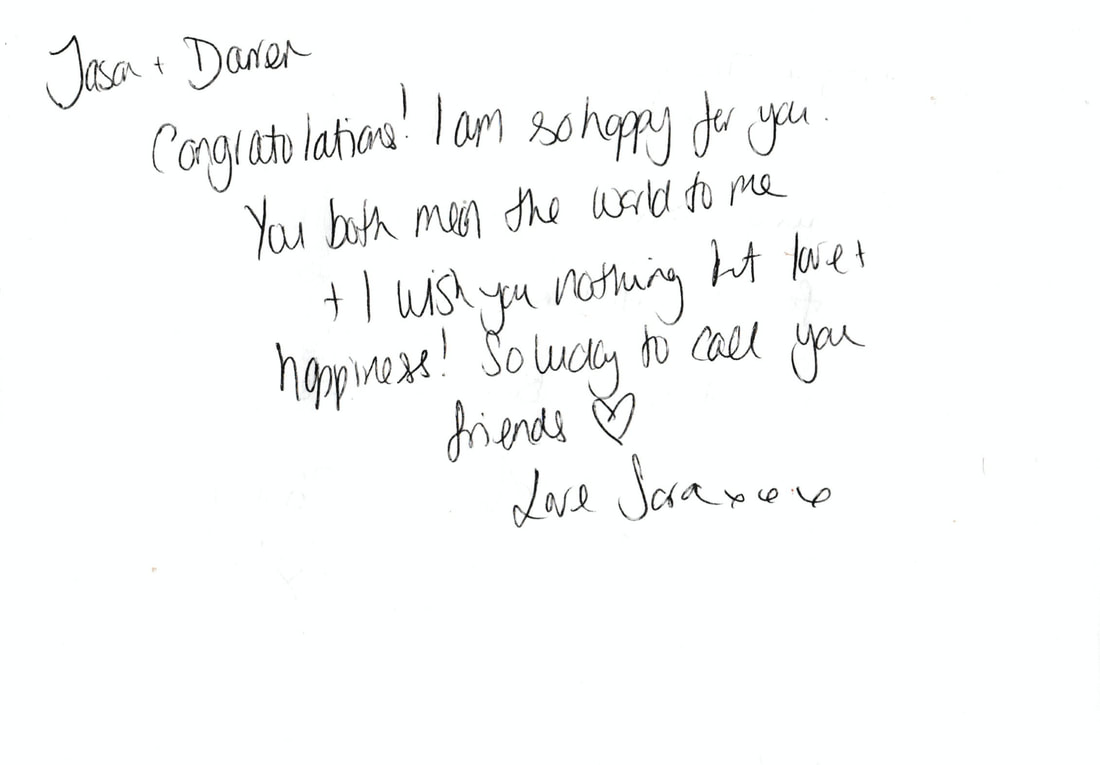 Jason + Darren
Congratulations! I am so happy for you.
You both mean the world to me
+ I wish you nothing but love +
happiness! So lucky to call you
friends ♡
Love Sara xxx